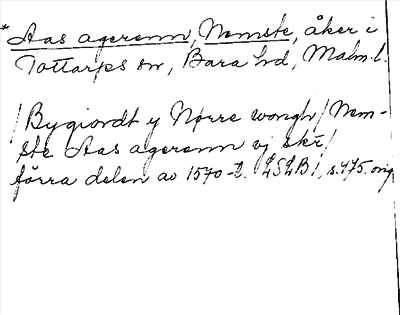 *Aas agerenn, Nemste, åker i
Tottarps sn, Bara hd, Malm.l.
/Bygiordt y Nörre wongh/ Nem-
ste Aas agerenn vj skr/
förra delen av 1570-t. LSLB 1, s.475. orig